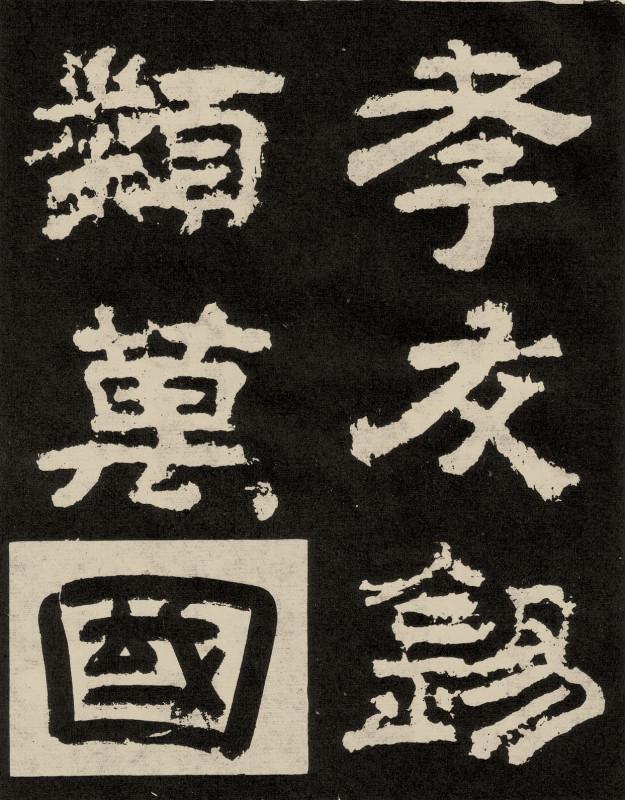 孝友錫
類萬國